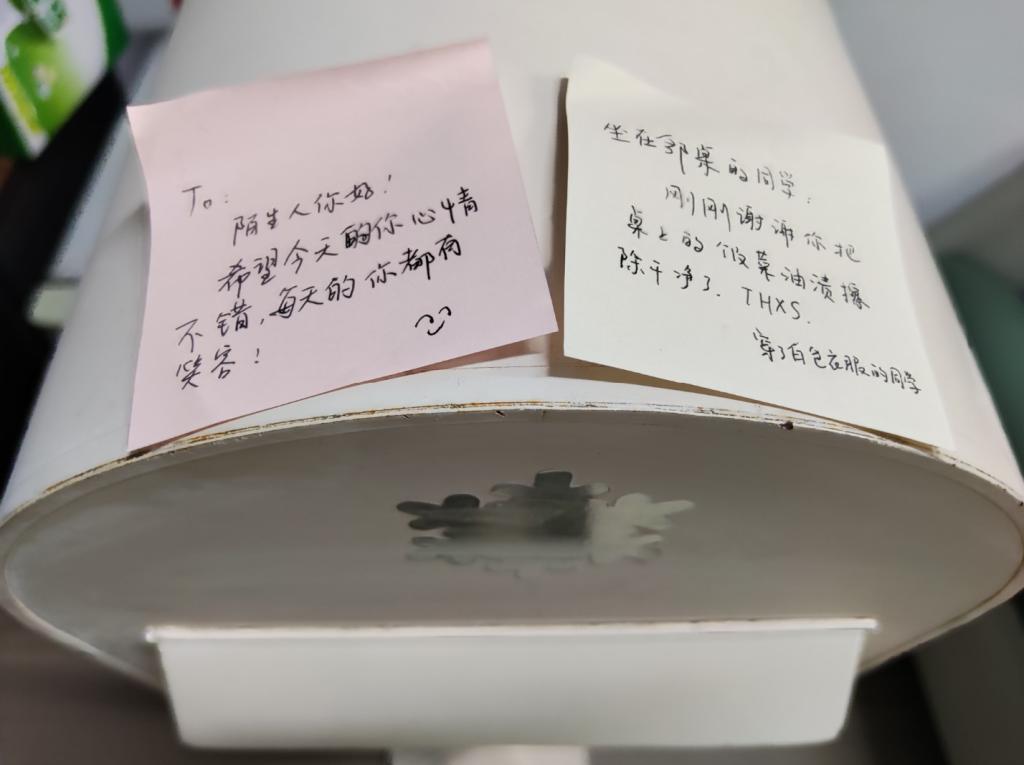 To:
陌生人你好!
希望今天的你心情
不错,每天的你都有
笑容!
坐在邻桌的同学:
刚刚谢谢你把
桌上的饭菜油渍擦
除干净了. THXS.
穿了白色衣服的同学